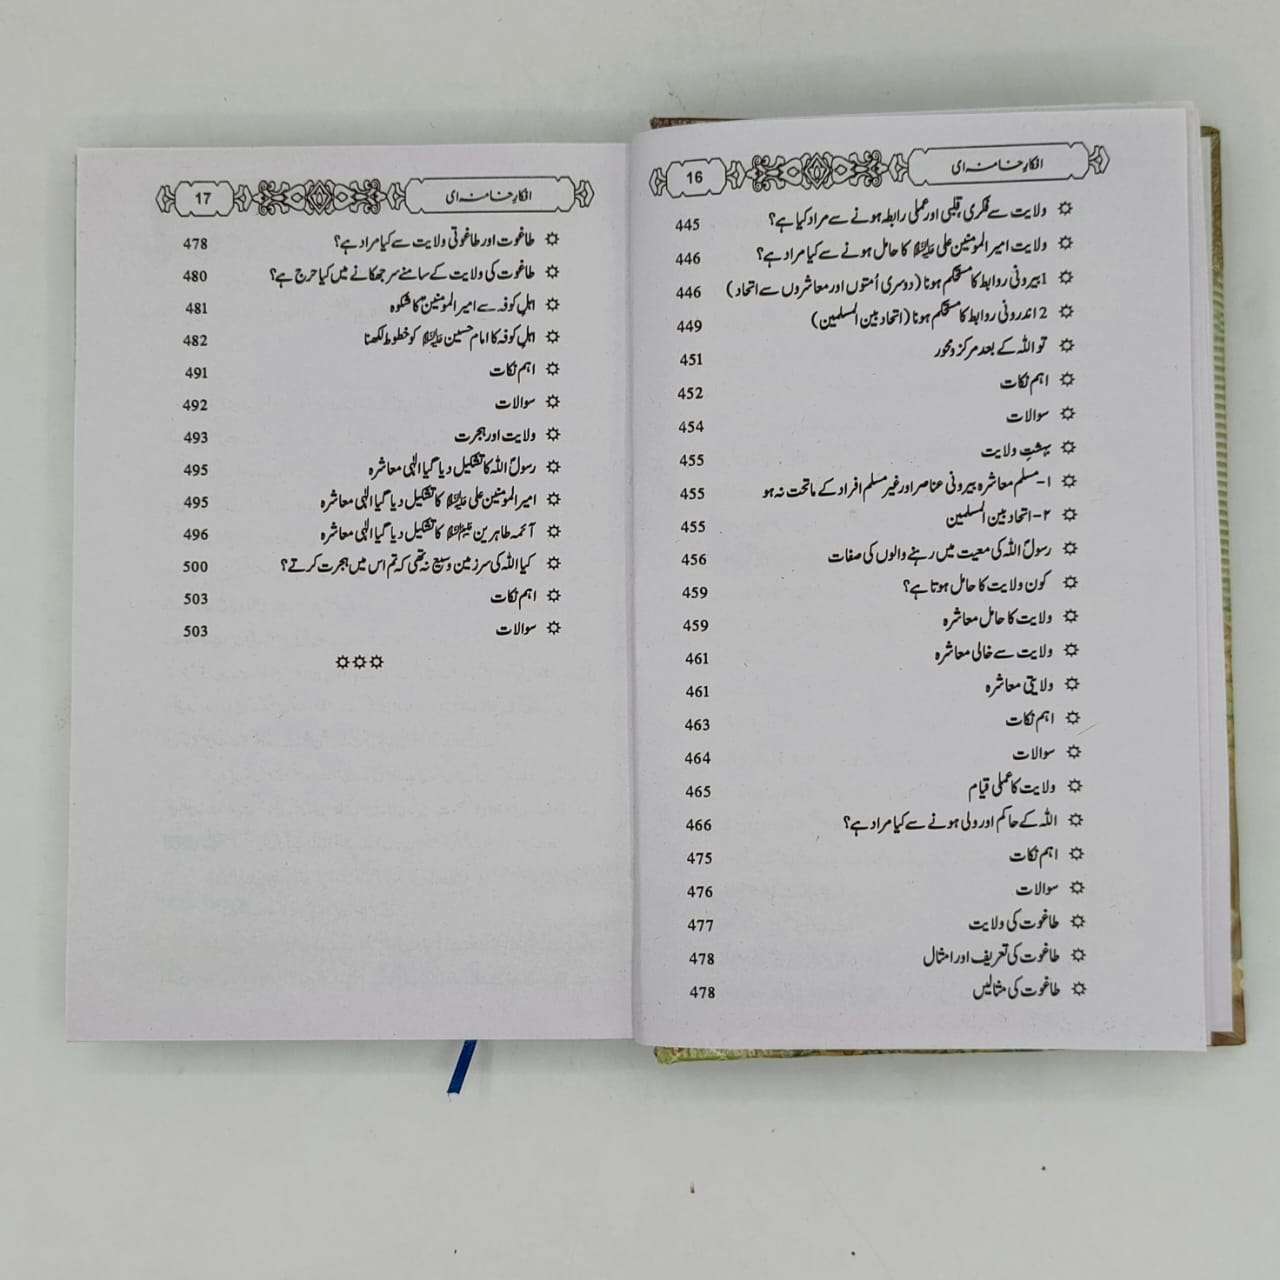 افکارِ خامنہ ای 16
ولایت سے فکری، قلبی اور عملی رابطہ ہونے سے مراد کیا ہے؟ 445
ولایت امیر المومنین علی علیہ السلام کا حامل ہونے سے کیا مراد ہے؟ 446
1 بیرونی روابط کا مستحکم ہونا (دوسری اُمتوں اور معاشروں سے اتحاد) 446
2 اندرونی روابط کا مستحکم ہونا (اتحاد بین المسلمین) 449
تو اللہ کے بعد مرکز و محور 451
اہم نکات 452
سوالات 454
بہشتِ ولایت 455
۱- مسلم معاشرہ بیرونی عناصر اور غیر مسلم افراد کے ماتحت نہ ہو 455
۲- اتحاد بین المسلمین 455
رسولؐ اللہ کی معیت میں رہنے والوں کی صفات 456
کون ولایت کا حامل ہوتا ہے؟ 459
ولایت کا حامل معاشرہ 459
ولایت سے خالی معاشرہ 461
ولایتی معاشرہ 461
اہم نکات 463
سوالات 464
ولایت کا عملی قیام 465
اللہ کے حاکم اور ولی ہونے سے کیا مراد ہے؟ 466
اہم نکات 475
سوالات 476
طاغوت کی ولایت 477
طاغوت کی تعریف اور امثال 478
طاغوت کی مثالیں 478
افکارِ خامنہ ای 17
طاغوت اور طاغوتی ولایت سے کیا مراد ہے؟ 478
طاغوت کی ولایت کے سامنے سر جھکانے میں کیا حرج ہے؟ 480
اہلِ کوفہ سے امیر المومنینؑ کا شکوہ 481
اہلِ کوفہ کا امام حسین علیہ السلام کو خطوط لکھنا 482
اہم نکات 491
سوالات 492
ولایت اور ہجرت 493
رسولؐ اللہ کا تشکیل دیا گیا الٰہی معاشرہ 495
امیر المومنین علی علیہ السلام کا تشکیل دیا گیا الٰہی معاشرہ 495
آئمہ طاہرین علیہم السلام کا تشکیل دیا گیا الٰہی معاشرہ 496
کیا اللہ کی سرزمین وسیع نہ تھی کہ تم اس میں ہجرت کرتے؟ 500
اہم نکات 503
سوالات 503